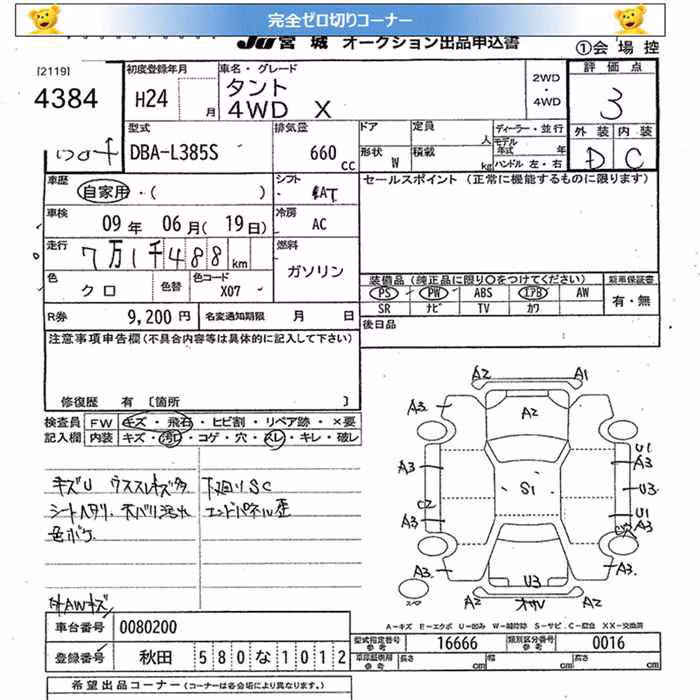 完全ゼロ切りコーナー
JU宮城 オークション出品申込書
①会場控
[2119]
4384
初度登録年月
H24 月
車名・グレード
タント
4WD X
2WD
・
4WD
評価点
3
外装 内装
D C
型式
DBA-L385S
排気量
660 cc
ドア
定員
人
ディーラー・並行
モデル年式 年
形状
W
積載
kg
ハンドル 左・右
車歴
自家用・( )
シフト
セールスポイント (正常に機能するものに限ります)
車検
09年 06月(19日)
冷房
AC
走行
7万1千488km
燃料
ガソリン
色
クロ
色替
色コード
X07
装備品 (純正品に限り○をつけてください)
PS PW ABS エアB AW
SR ナビ TV カワ
新車保証書
有・無
R券 9,200円
名変通知期限 月 日
後日品
注意事項申告欄(不具合内容等は具体的に記入して下さい)
修復歴 有 〔箇所 〕
検査員
記入欄
FW キズ・飛石・ヒビ割・リペア跡・×要
内装 キズ・汚レ・コゲ・穴・スレ・キレ・破レ
キズU ウススレキズ多
シートヘタリ、天バリ汚れ
色ボケ
下廻りSC
エンドパネル歪
社AWキズ
A2 A1
A3 A2 A3
A3 U1 A3
S1 U3
C2
A3 U1 A3
A3 U3 A3
スペア A2 オサレ A2
A-キズ E-エクボ U-凹み W-補修跡 S-サビ C-腐食 XX-交換済
車台番号 0080200
登録番号 秋田 580な1012
型式指定番号 参考 16666
類別区分番号 参考 0016
車庫証明用 参考 長さ cm 幅 cm 高さ cm
希望出品コーナー (コーナーは各会場により異なります。)